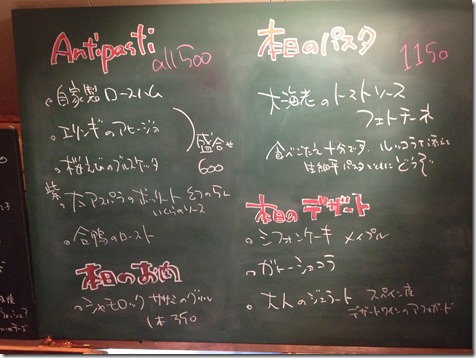 Antipasti all 500
自家製ロースハム
エリンギのアヒージョ
桜えびのブルスケッタ
盛合せ
600
紫
アスパラのボリート
いくらのソース
合鴨のロースト
本日のお肉
シャモロック ササミのグリル
本日のパスタ 1150
大海老のトマトソース
フェトチーネ
食べごたえ十分です。ルッコラを添えて
生細平パスタとともにどうぞ
本日のデザート
シフォンケーキ メイプル
ガトーショコラ
大人のジェラート スペイン産
デザートワインのアフォガード